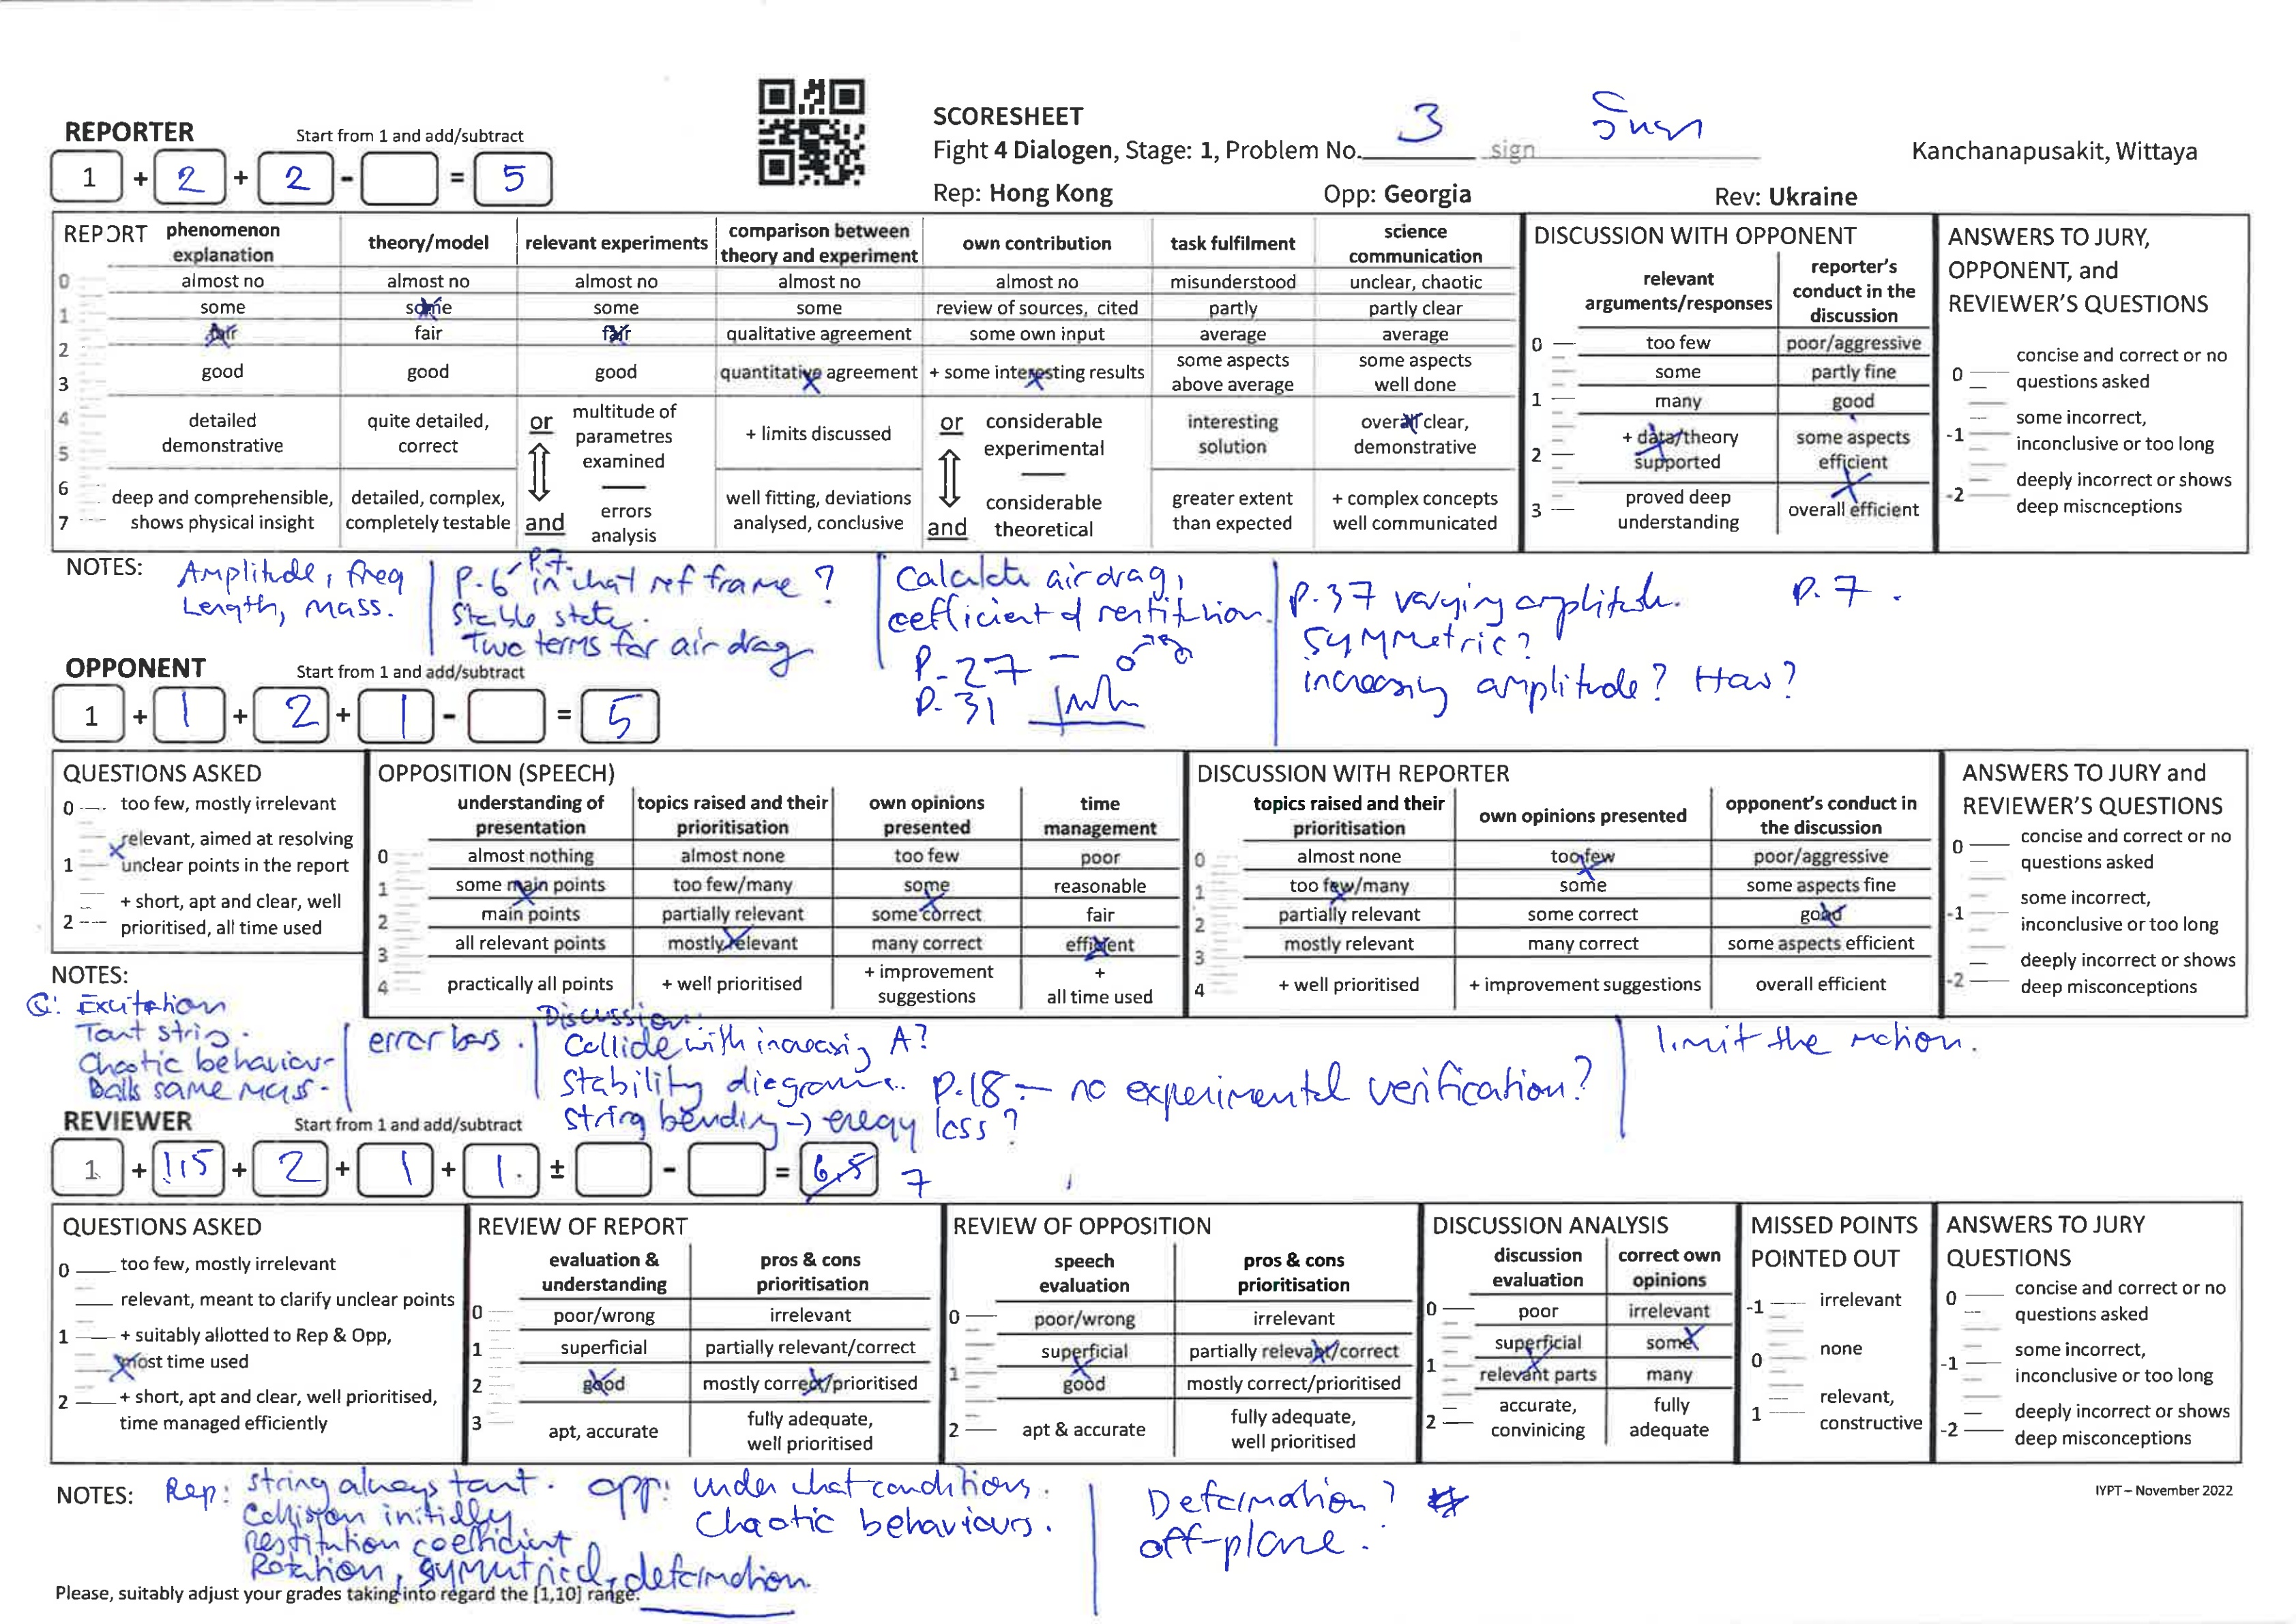 SCORESHEET
Fight 4 Dialogen, Stage: 1, Problem No. 3 sign
Kanchanapusakit, Wittaya
Rep: Hong Kong Opp: Georgia Rev: Ukraine
REPORTER Start from 1 and add/subtract
1 + 2 + 2 - = 5
REPORT
phenomenon explanation
almost no
some
fair
good
detailed demonstrative
deep and comprehensible, shows physical insight
theory/model
almost no
some
fair
good
quite detailed, correct
detailed, complex, completely testable
relevant experiments
almost no
some
fair
good
or
multitude of parametres examined
and
errors analysis
comparison between theory and experiment
almost no
some
qualitative agreement
quantitative agreement
+ limits discussed
well fitting, deviations analysed, conclusive
own contribution
almost no
review of sources, cited
some own input
+ some interesting results
or
considerable experimental
and
considerable theoretical
task fulfilment
misunderstood
partly
average
some aspects above average
interesting solution
greater extent than expected
science communication
unclear, chaotic
partly clear
average
some aspects well done
overall clear, demonstrative
+ complex concepts well communicated
0
1
2
3
4
5
6
7
DISCUSSION WITH OPPONENT
relevant arguments/responses
too few
some
many
+ data/theory supported
proved deep understanding
reporter's conduct in the discussion
poor/aggressive
partly fine
good
some aspects efficient
overall efficient
0
1
2
3
ANSWERS TO JURY, OPPONENT, and REVIEWER'S QUESTIONS
0 concise and correct or no questions asked
-1 some incorrect, inconclusive or too long
-2 deeply incorrect or shows deep miscnceptions
NOTES:
Amplitude, freq
Length, mass.
P.6 P.7 in what ref frame?
Stable state.
Two terms for air drag
Calculate air drag,
coefficient of restitution.
P.27 -
P.31
P.37 varying amplitude.
symmetric?
increasing amplitude? How?
P.7.
OPPONENT Start from 1 and add/subtract
1 + 1 + 2 + 1 - = 5
QUESTIONS ASKED
0 too few, mostly irrelevant
relevant, aimed at resolving
1 unclear points in the report
+ short, apt and clear, well
2 prioritised, all time used
OPPOSITION (SPEECH)
understanding of presentation
almost nothing
some main points
main points
all relevant points
practically all points
topics raised and their prioritisation
almost none
too few/many
partially relevant
mostly relevant
+ well prioritised
own opinions presented
too few
some
some correct
many correct
+ improvement suggestions
time management
poor
reasonable
fair
efficient
+
all time used
0
1
2
3
4
DISCUSSION WITH REPORTER
topics raised and their prioritisation
almost none
too few/many
partially relevant
mostly relevant
+ well prioritised
own opinions presented
too few
some
some correct
many correct
+ improvement suggestions
opponent's conduct in the discussion
poor/aggressive
some aspects fine
good
some aspects efficient
overall efficient
0
1
2
3
4
ANSWERS TO JURY and REVIEWER'S QUESTIONS
0 concise and correct or no questions asked
-1 some incorrect, inconclusive or too long
-2 deeply incorrect or shows deep misconceptions
NOTES:
Q: Excitation
Taut string.
Chaotic behaviour
Balls same mass.
error bars.
Discussion:
Collide with increasing A?
Stability diagrams. P.18 - no experimental verification?
String bending → energy loss?
limit the motion.
REVIEWER Start from 1 and add/subtract
1 + 1.5 + 2 + 1 + 1. ± - = 6.5 7
QUESTIONS ASKED
0 too few, mostly irrelevant
relevant, meant to clarify unclear points
1 + suitably allotted to Rep & Opp,
most time used
2 + short, apt and clear, well prioritised,
time managed efficiently
REVIEW OF REPORT
evaluation & understanding
poor/wrong
superficial
good
apt, accurate
pros & cons prioritisation
irrelevant
partially relevant/correct
mostly correct/prioritised
fully adequate, well prioritised
0
1
2
3
REVIEW OF OPPOSITION
speech evaluation
poor/wrong
superficial
good
apt & accurate
pros & cons prioritisation
irrelevant
partially relevant/correct
mostly correct/prioritised
fully adequate, well prioritised
0
1
2
DISCUSSION ANALYSIS
discussion evaluation
poor
superficial
relevant parts
accurate, convinicing
correct own opinions
irrelevant
some
many
fully adequate
0
1
2
MISSED POINTS POINTED OUT
-1 irrelevant
0 none
1 relevant, constructive
ANSWERS TO JURY QUESTIONS
0 concise and correct or no questions asked
-1 some incorrect, inconclusive or too long
-2 deeply incorrect or shows deep misconceptions
NOTES:
Rep: string always taut.
Collision initially
Restitution coefficient
Rotation, symmetrical, deformation.
Opp: under what conditions.
Chaotic behaviours.
Deformation?
off-plane.
IYPT – November 2022
Please, suitably adjust your grades taking into regard the [1,10] range.